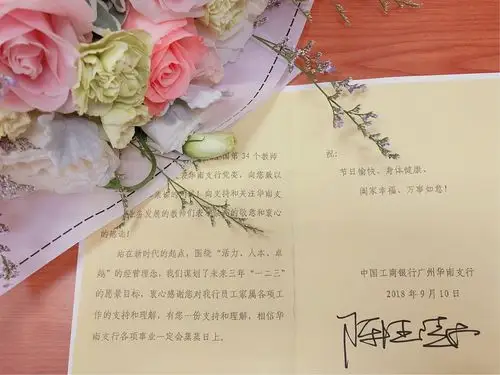 第34个教师
华南支行党委，向您致以
向支持和关注华南支
发展的教师们表
的敬意和衷心
的感谢！
站在新时代的起点，围绕“活力、人本、卓
越”的经营理念，我们谋划了未来三年“一二三”
的愿景目标，衷心感谢您对我行员工家属各项工
作的支持和理解，有您一份支持和理解，相信华
南支行各项事业一定会蒸蒸日上。
祝：
节日愉快、身体健康、
阖家幸福、万事如意！
中国工商银行广州华南支行
2018年9月10日